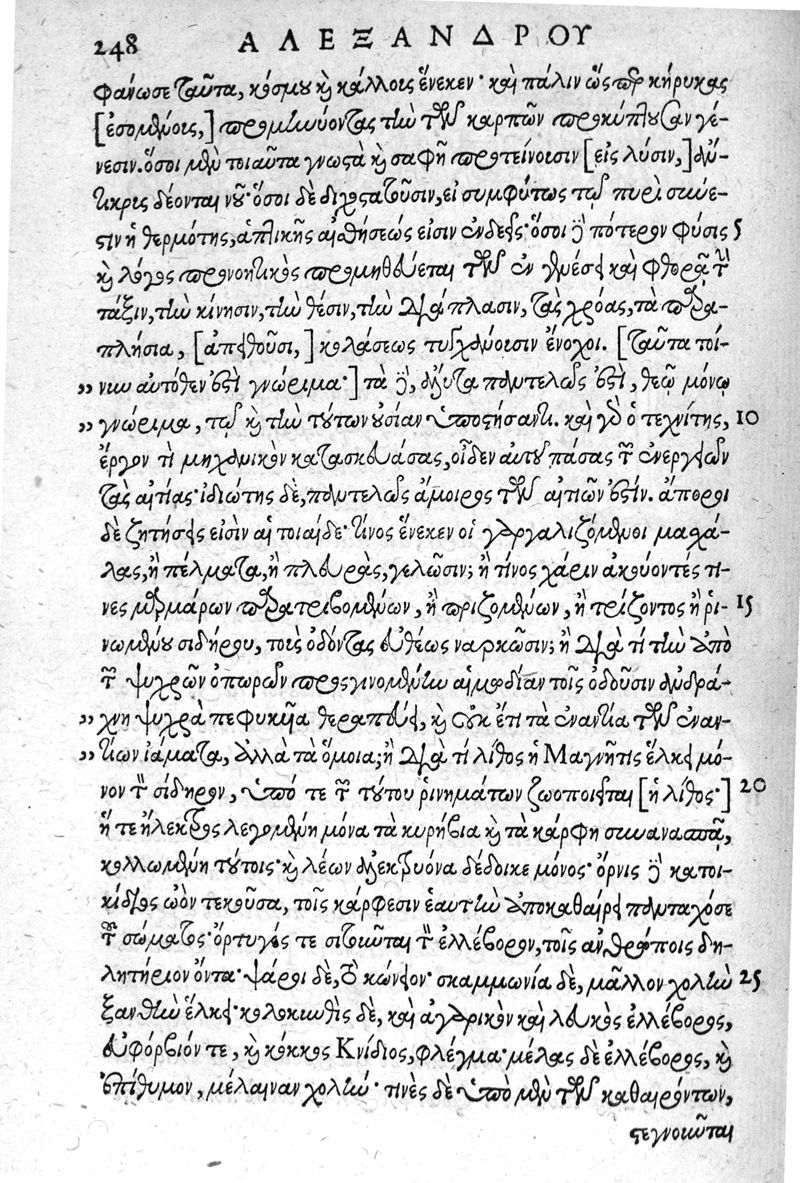 248 ΑΛΕΞΑΝΔΡΟΥ
φανῶσι ταῦτα, κόσμου καὶ κάλλοις ἕνεκεν· καὶ πάλιν ὥσπερ κήρυκας
[ἐσομένοις,] προμηνύοντας τὴν τῶν καρπῶν προκύπτουσαν γέ-
νεσιν. ὅσοι μὲν τοιαῦτα γνωστὰ καὶ σαφῆ προτείνοισιν [εἰς λύσιν,] ἄν-
τικρις δέονται νοῦ· ὅσοι δὲ διχοστατοῦσιν, εἰ συμφύτως τῷ πυρὶ συνέ-
στιν ἡ θερμότης, ἁπλικῆς αἰσθήσεώς εἰσιν ἐνδεεῖς· ὅσοι δὲ πότερον φύσις 5
καὶ λόγος προνοητικὸς προμηθεύεται τῶν ἐν γενέσει καὶ φθορᾷ τὴν
τάξιν, τὴν κίνησιν, τὴν θέσιν, τὴν διάπλασιν, τὰς χρόας, τὰ παρα-
πλήσια, [ἀπειθοῦσι,] κολάσεως τυγχάνοισιν ἔνοχοι. [ταῦτα τοί-
„ νυν αὐτόθεν ἐστὶ γνώριμα·] τὰ δὲ, ἄλυτα παντελῶς ἐστὶ, θεῷ μόνῳ
„ γνώριμα, τῷ καὶ τὴν τούτων οὐσίαν ὑποστήσαντι. καὶ γὰρ ὁ τεχνίτης, 10
ἔργον τὶ μηχανικὸν κατασκευάσας, οἶδεν αὐτοῦ πάσας τῶν ἐνεργειῶν
τὰς αἰτίας· ἰδιώτης δὲ, παντελῶς ἄμοιρος τῶν αἰτιῶν ἐστίν. ἄποροι
δὲ ζητήσεις εἰσὶν αἱ τοιαίδε· τίνος ἕνεκεν οἱ γαργαλιζόμενοι μασχά-
λας, ἢ πέλματα, ἢ πλευρὰς, γελῶσιν; ἢ τίνος χάριν ἀκούοντές τι-
νες μαρμάρων παρατριβομένων, ἢ πριζομένων, ἢ τρίζοντος ἢ ῥι- 15
νωμένου σιδήρου, τοὺς ὀδόντας εὐθέως ναρκῶσιν; ἢ διὰ τί τὴν ἀπὸ
τῶν ψυχρῶν ὀπωρῶν προσγινομένην αἱμωδίαν τοῖς ὀδοῦσιν ἀνδρά-
„ χνη ψυχρὰ πεφυκυῖα θεραπεύει, καὶ οὐκ ἔτι τὰ ἐναντία τῶν ἐναν-
„ τίων ἰάματα, ἀλλὰ τὰ ὅμοια; ἢ διὰ τί λίθος ἡ Μαγνῆτις ἕλκει μό-
νον τὸν σίδηρον, ὑπό τε τῶν τούτου ῥινημάτων ζωοποιεῖται [ἡ λίθος·] 20
ἥ τε ἤλεκτρος λεγομένη μόνα τὰ κυρήβια καὶ τὰ κάρφη συνανασπᾷ,
κολλωμένη τούτοις· καὶ λέων ἀλεκτρυόνα δέδοικε μόνος· ὄρνις δὲ κατοι-
κίδιος ὠὸν τεκοῦσα, τοῖς κάρφεσιν ἑαυτὴν ἀποκαθαίρει πολυταχόσε
τοῦ σώματος· ὄρτυγές τε σιτοῦνται τὸν ἑλλέβορον, τοῖς ἀνθρώποις δη-
λητήριον ὄντα· ψάροι δὲ, τὸ κώνειον· σκαμμωνία δὲ, μᾶλλον χολὴν 25
ξανθὴν ἕλκει· κολοκυνθὶς δὲ, καὶ ἀγαρικὸν καὶ λευκὸς ἑλλέβορος,
εὐφόρβιόν τε, καὶ κόκκος Κνίδιος, φλέγμα· μέλας δὲ ἑλλέβορος, καὶ
ἐπίθυμον, μέλαιναν χολήν· τινὲς δὲ ὑπὸ μὲν τῶν καθαιρόντων,
στεγνοῦνται